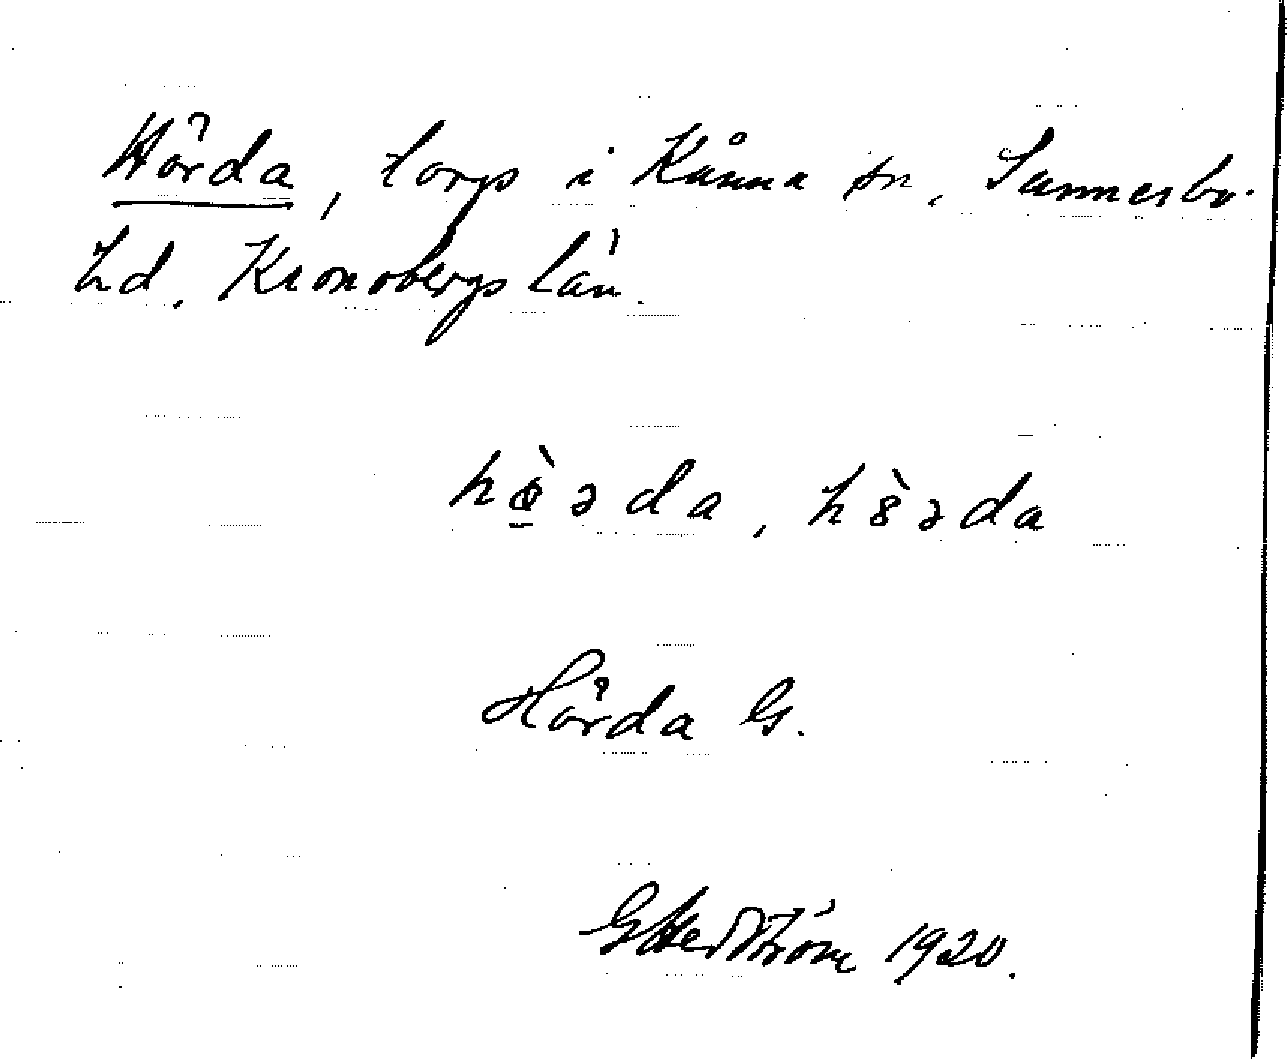 Hörda, torp i Kånna sn, Sunnerbo
hd, Kronobergs län.
hö̱̀əda, hö̀əda
Hörda G.
G Hedström 1920.